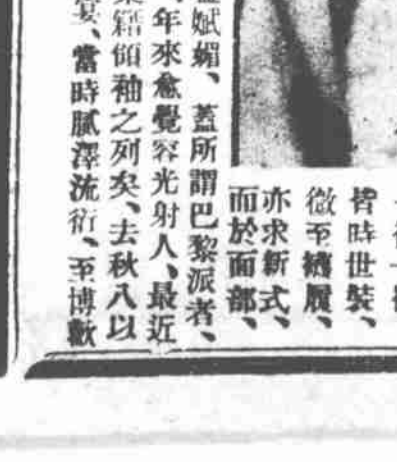 皆時世裝、
微至襪履、
亦求新式、
而於面部、
娬媚、蓋所謂巴黎派者、
年來愈覺容光射人、最近
籍領袖之列矣、去秋八以
宴、當時膩澤流衍、至博歡